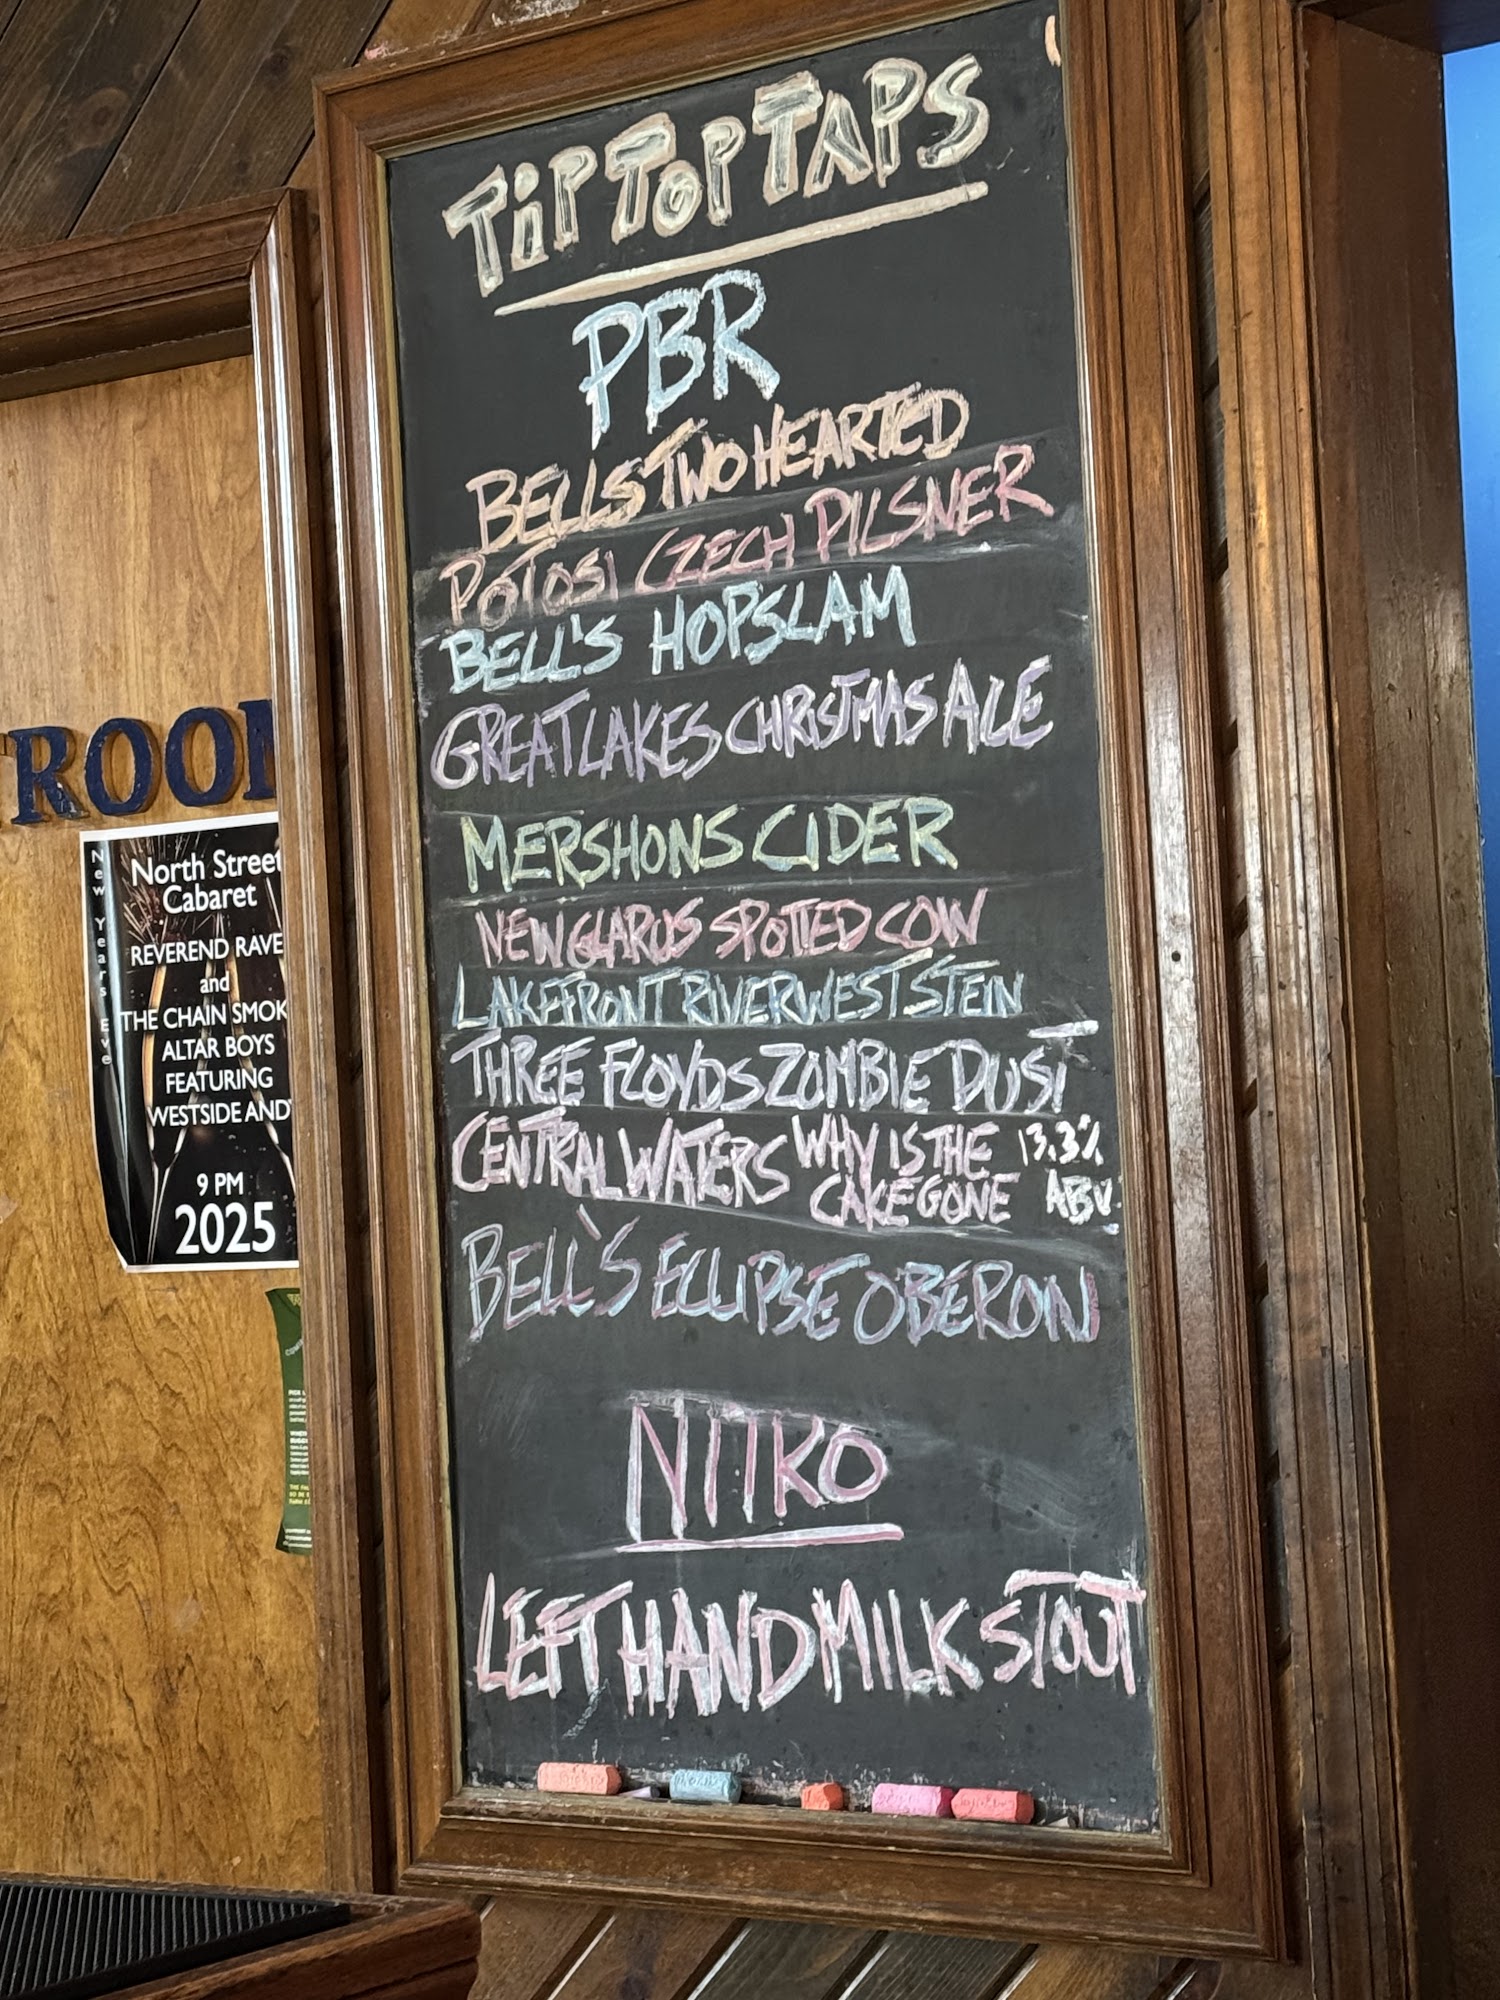 TiP TOP TAPS
PBR
BELLS TWO HEARTED
POTOSI CZECH PILSNER
BELL'S HOPSLAM
GREAT LAKES CHRISTMAS ALE
MERSHONS CIDER
NEW GLARUS SPOTTED COW
LAKEFRONT RIVERWEST STEIN
THREE FLOYDS ZOMBIE DUST
CENTRAL WATERS WHY IS THE CAKE GONE 13.3% ABV.
BELL'S ECLIPSE OBERON
NITRO
LEFT HAND MILK STOUT
ROOM
New Years Eve
North Street
Cabaret
REVEREND RAVE
and
THE CHAIN SMOK
ALTAR BOYS
FEATURING
WESTSIDE AND
9 PM
2025